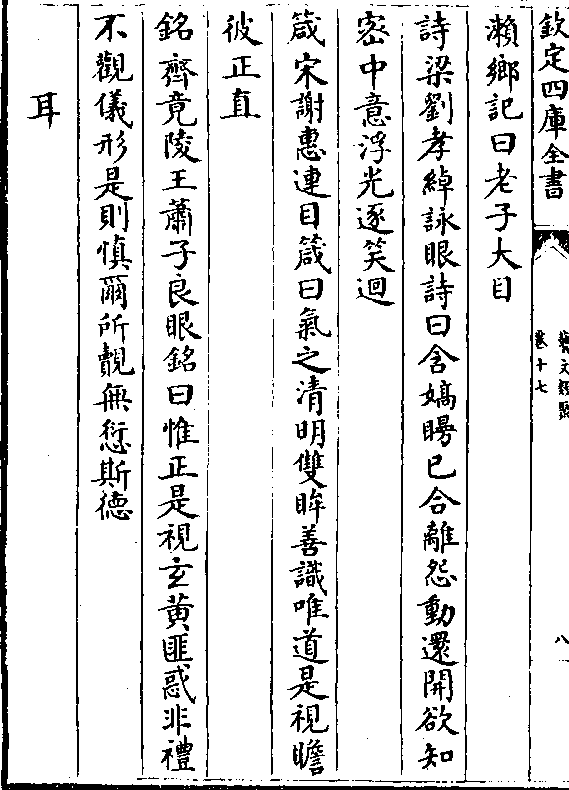 欽定四庫全書
藝文類聚
卷十七
八
瀨鄉記曰老子大目
詩梁劉孝綽詠眼詩曰含嬌曭已合離怨動還開欲知
密中意浮光逐笑迴
箴宋謝惠連目箴曰氣之清明雙眸善識唯道是視瞻
彼正直
銘齊竟陵王蕭子良眼銘曰惟正是視玄黄匪惑非禮
不觀儀形是則慎爾所覿無愆斯德
耳